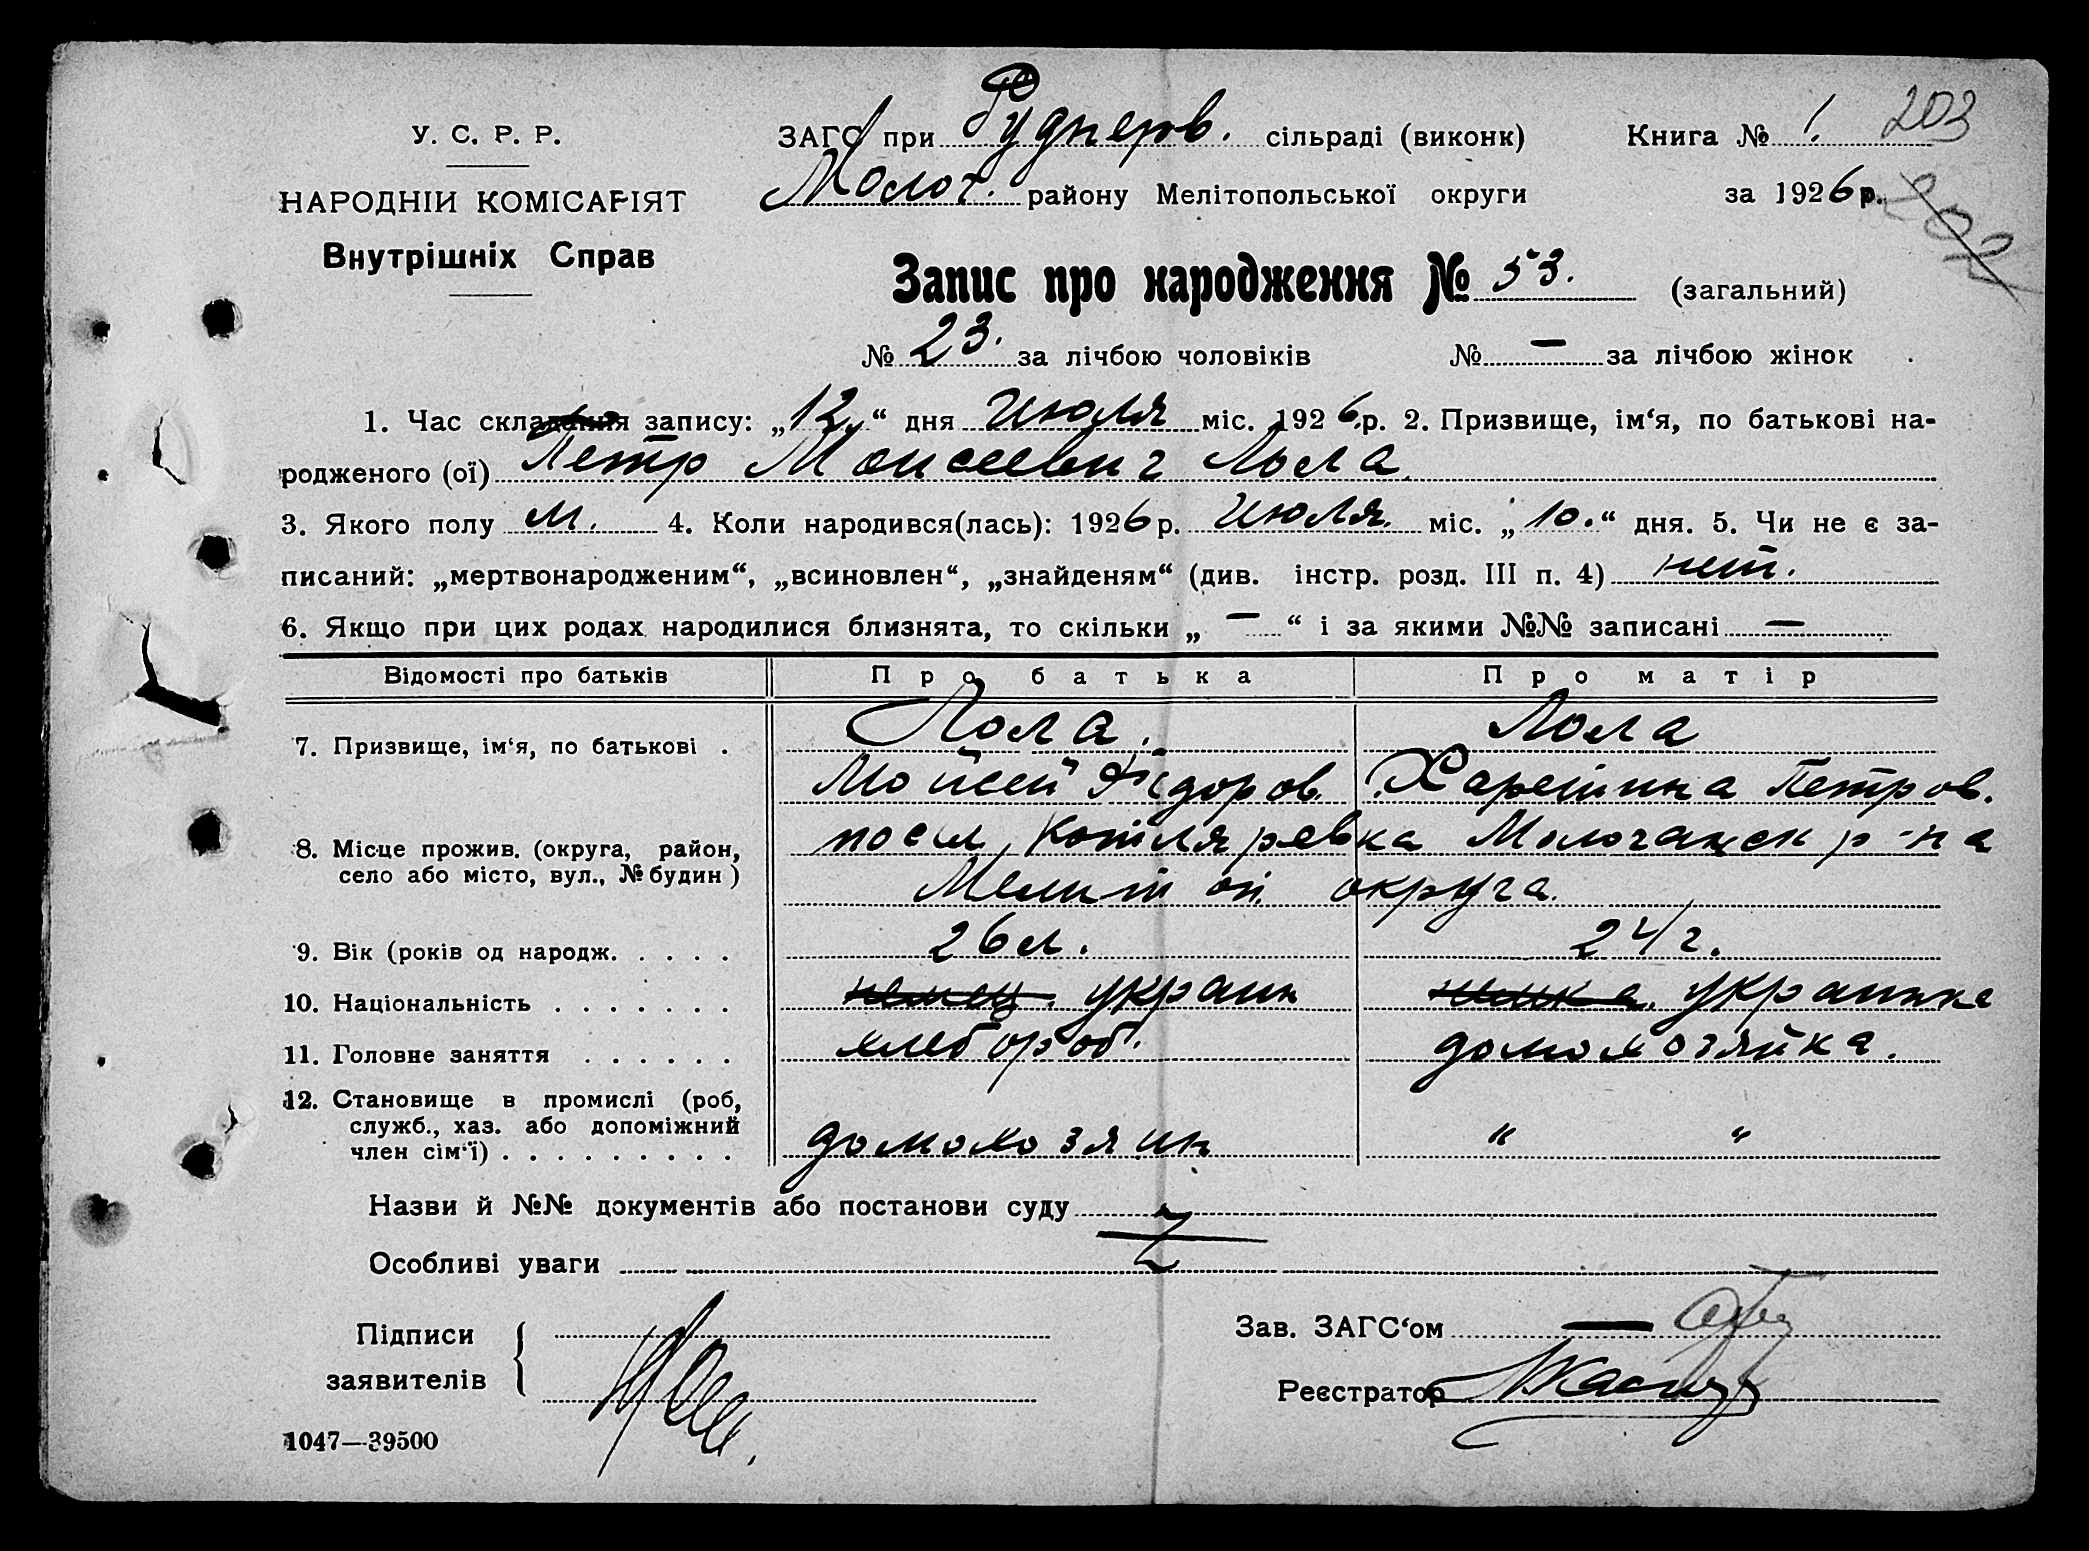 203
У. С. Р. Р.
ЗАГС при Руднерв. сільраді (виконк)
Книга № 1.
НАРОДНІЙ КОМІСАРІЯТ
Молот. району Мелітопольської округи
за 1926 р.
202
Внутрішніх Справ
Запис про народження № 53. (загальний)
№ 23. за лічбою чоловіків № — за лічбою жінок
1. Час складання запису: „12.“ дня Июля міс. 1926 р. 2. Призвище, ім‘я, по батькові на-
родженого (ої) Петр Моисеевич Лола.
3. Якого полу м. 4. Коли народився(лась): 1926 р. Июля. міс. „10.“ дня. 5. Чи не є за-
писаний: „мертвонародженим“, „всиновлен“, „знайденям“ (див. інстр. розд. III п. 4) нет.
6. Якщо при цих родах народилися близнята, то скільки „ — “ і за якими №№ записані —
Відомості про батьків Про батька Про матір
7. Призвище, ім‘я, по батькові . Лола. Лола
Мойсей Фёдоров. Харетина Петров.
8. Місце прожив. (округа, район, посел, Котляревка Молочанск р-на
село або місто, вул., № будин) Мелитоп. округа.
9. Вік (років од народж. . . . . 26 л. 24 г.
10. Національність . . . . . . . немец. украин немка. украинка
11. Головне заняття . . . . . . хлебороб. домохозяйка.
12. Становище в промислі (роб,
служб., хаз. або допоміжний
член сім‘ї) . . . . . . . . . домохозяин " "
Назви й №№ документів або постанови суду
Особливі уваги
Z
Підписи
заявителів
Зав. ЗАГС‘ом —
Реєстратор
1047—39500